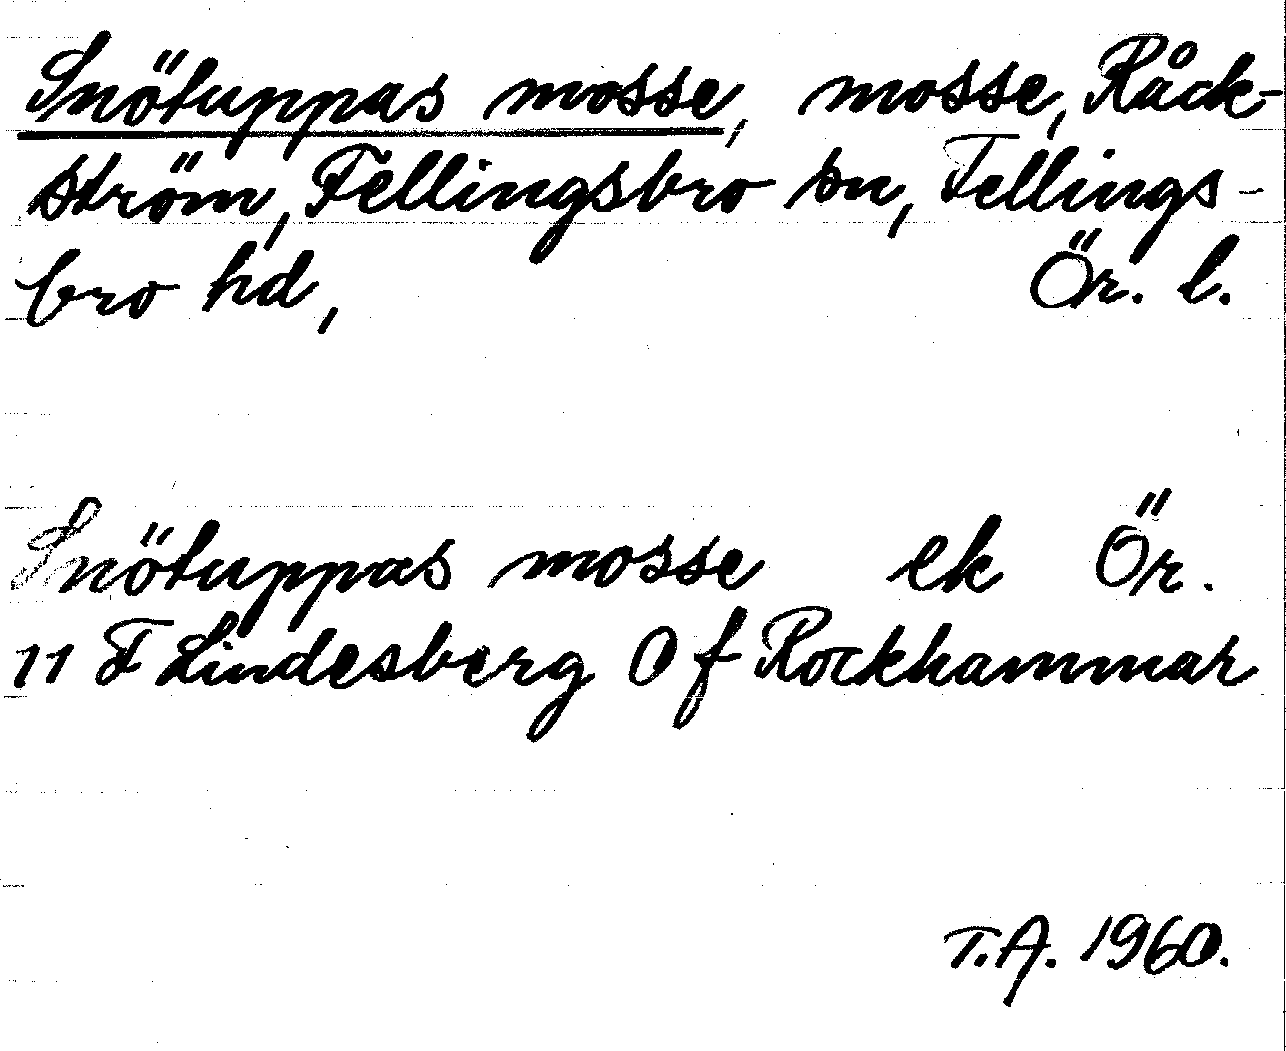 Snötuppas mosse, mosse, Råck-
ström, Fellingsbro sn, Fellings-
bro hd, Ör. l.
Snötuppas mosse ek Ör.
11 F Lindesberg O f Rockhammar
T.A. 1960.